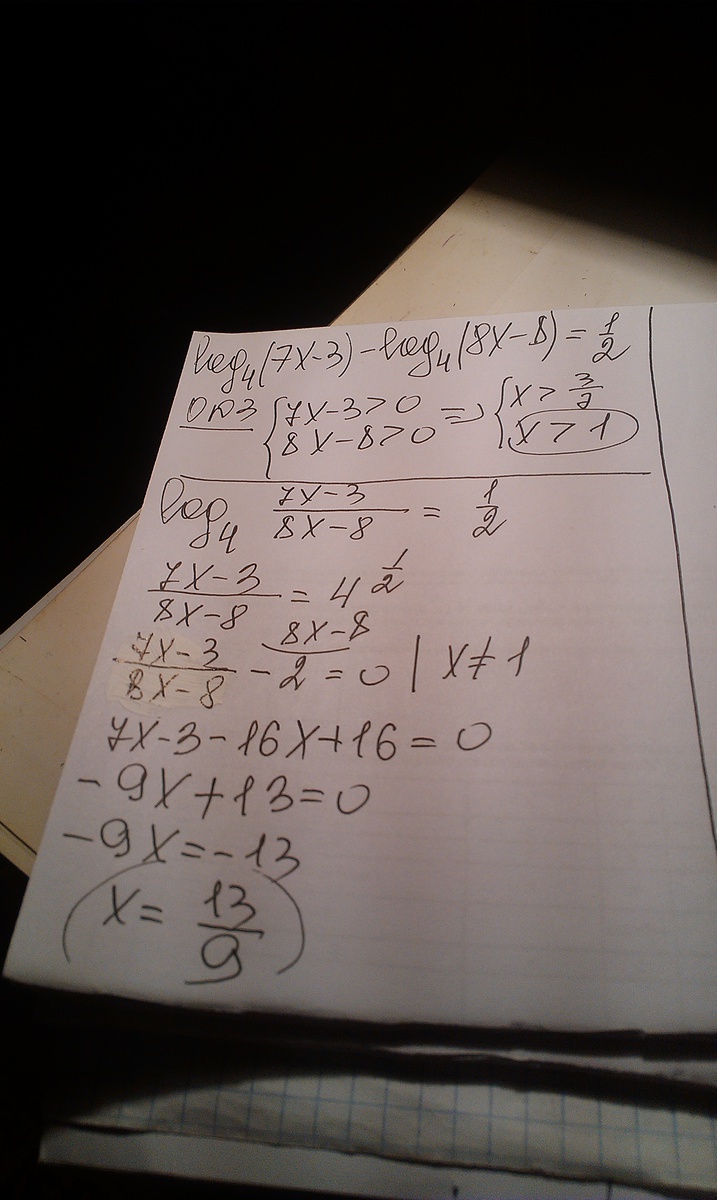 log₄(7x-3)-log₄(8x-8)=1/2
ОДЗ {7x-3>0 => {x>3/7
8x-8>0 x>1
log₄ (7x-3)/(8x-8) = 1/2
(7x-3)/(8x-8) = 4^(1/2)
8x-8
(7x-3)/(8x-8) - 2 = 0 | x≠1
7x-3-16x+16=0
-9x+13=0
-9x=-13
x= 13/9